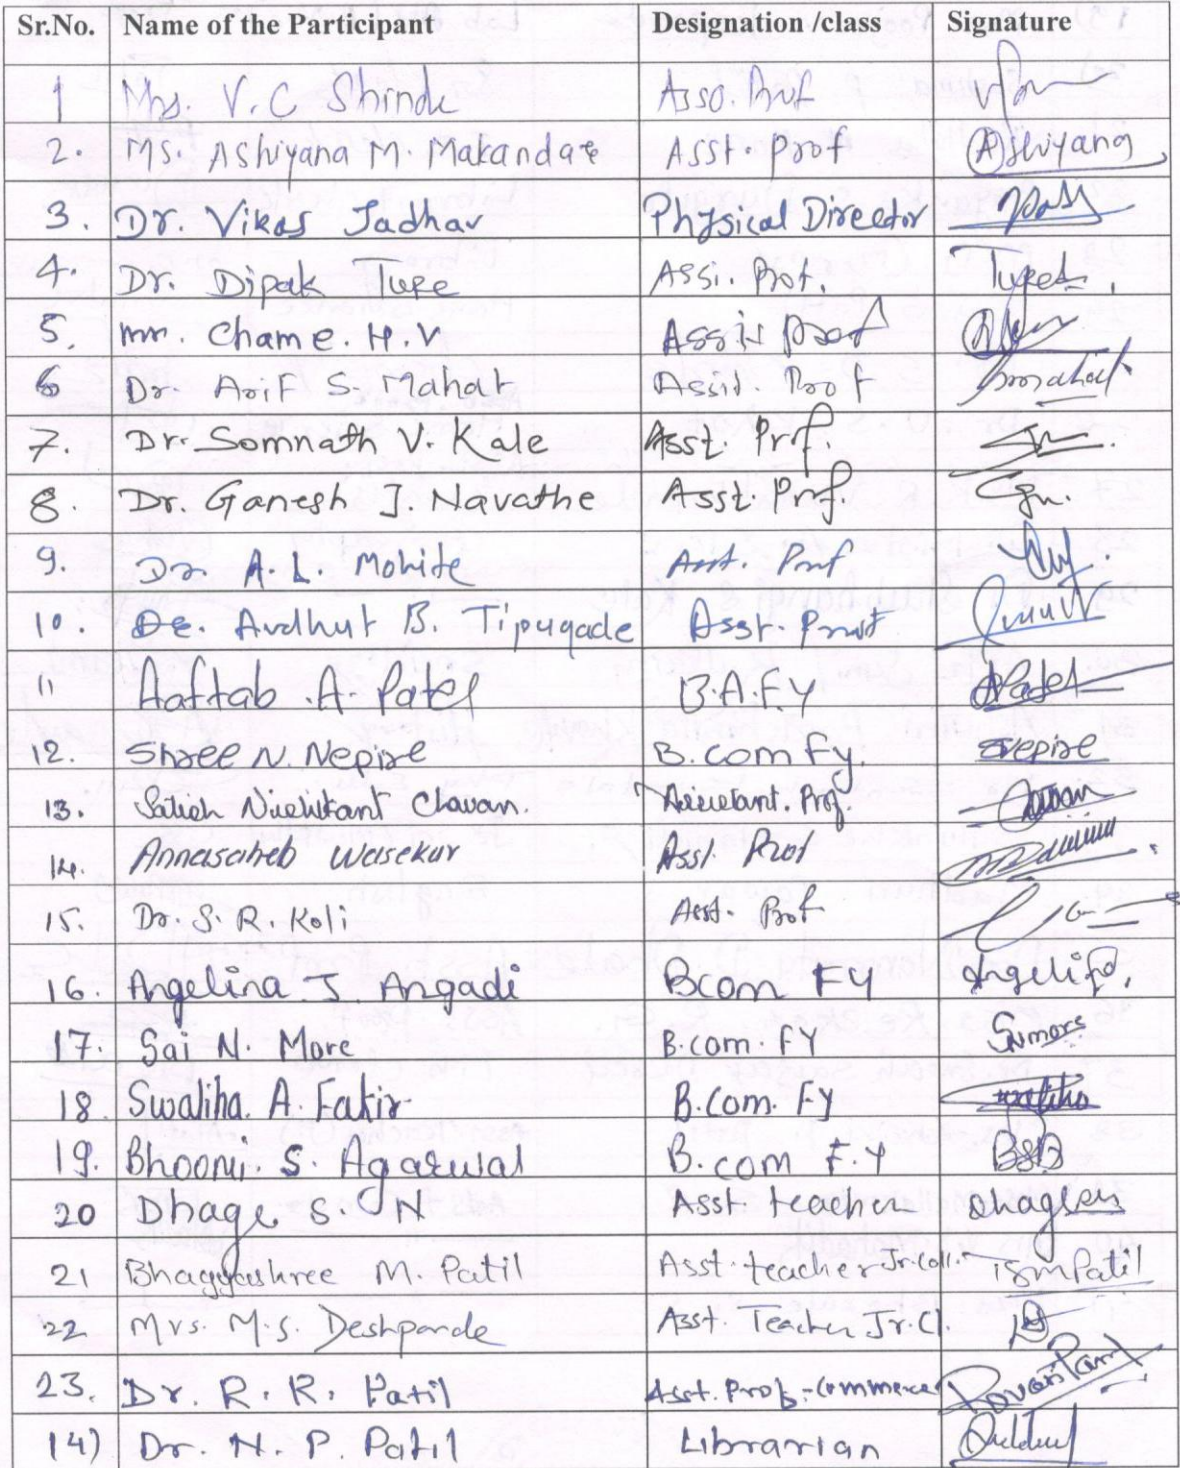 Sr.No. Name of the Participant Designation /class Signature
1 Mrs. V.C Shinde Asso. Prof
2. Ms. Ashiyana M. Makandar Asst. Prof Ashiyana
3. Dr. Vikas Jadhav Physical Director
4. Dr. Dipak Ture Assi. Prof.
5. mr. Chame. H.V Assis prof
6 Dr. Arif S. Mahat Assit. Prof
7. Dr. Somnath V. Kale Asst. Prf.
8. Dr. Ganesh J. Navathe Asst. Prof
9. Dr. A.L. Mohite Asst. Prof
10. Dr. Avdhut B. Tipugade Asst.
11 Aaftab .A. Patel B.A.F.Y APatel
12. Shree N. Nepire B.com Fy. SNepire
13. Satish Nishikant Chavan. Assistant. Prof.
14. Annasaheb Wasekar Asst. Prof
15. Dr. S. R. Koli Asst. Prof
16. Angelina J. Angadi Bcom FY
17. Sai N. More B.com. FY SNmore
18. Swaliha. A. Fakir B.Com. FY
19. Bhoomi. S. Agarwal B.com F.Y
20 Dhage S. N Asst. teacher
21 Bhagyashree M. Patil Asst. teacher Jr.coll. BMPatil
22 Mrs. M.S. Deshpande Asst. Teacher Jr.Cl.
23. Dr. R. R. Patil Asst. Prof.-Commerce
14) Dr. N. P. Patil Librarian